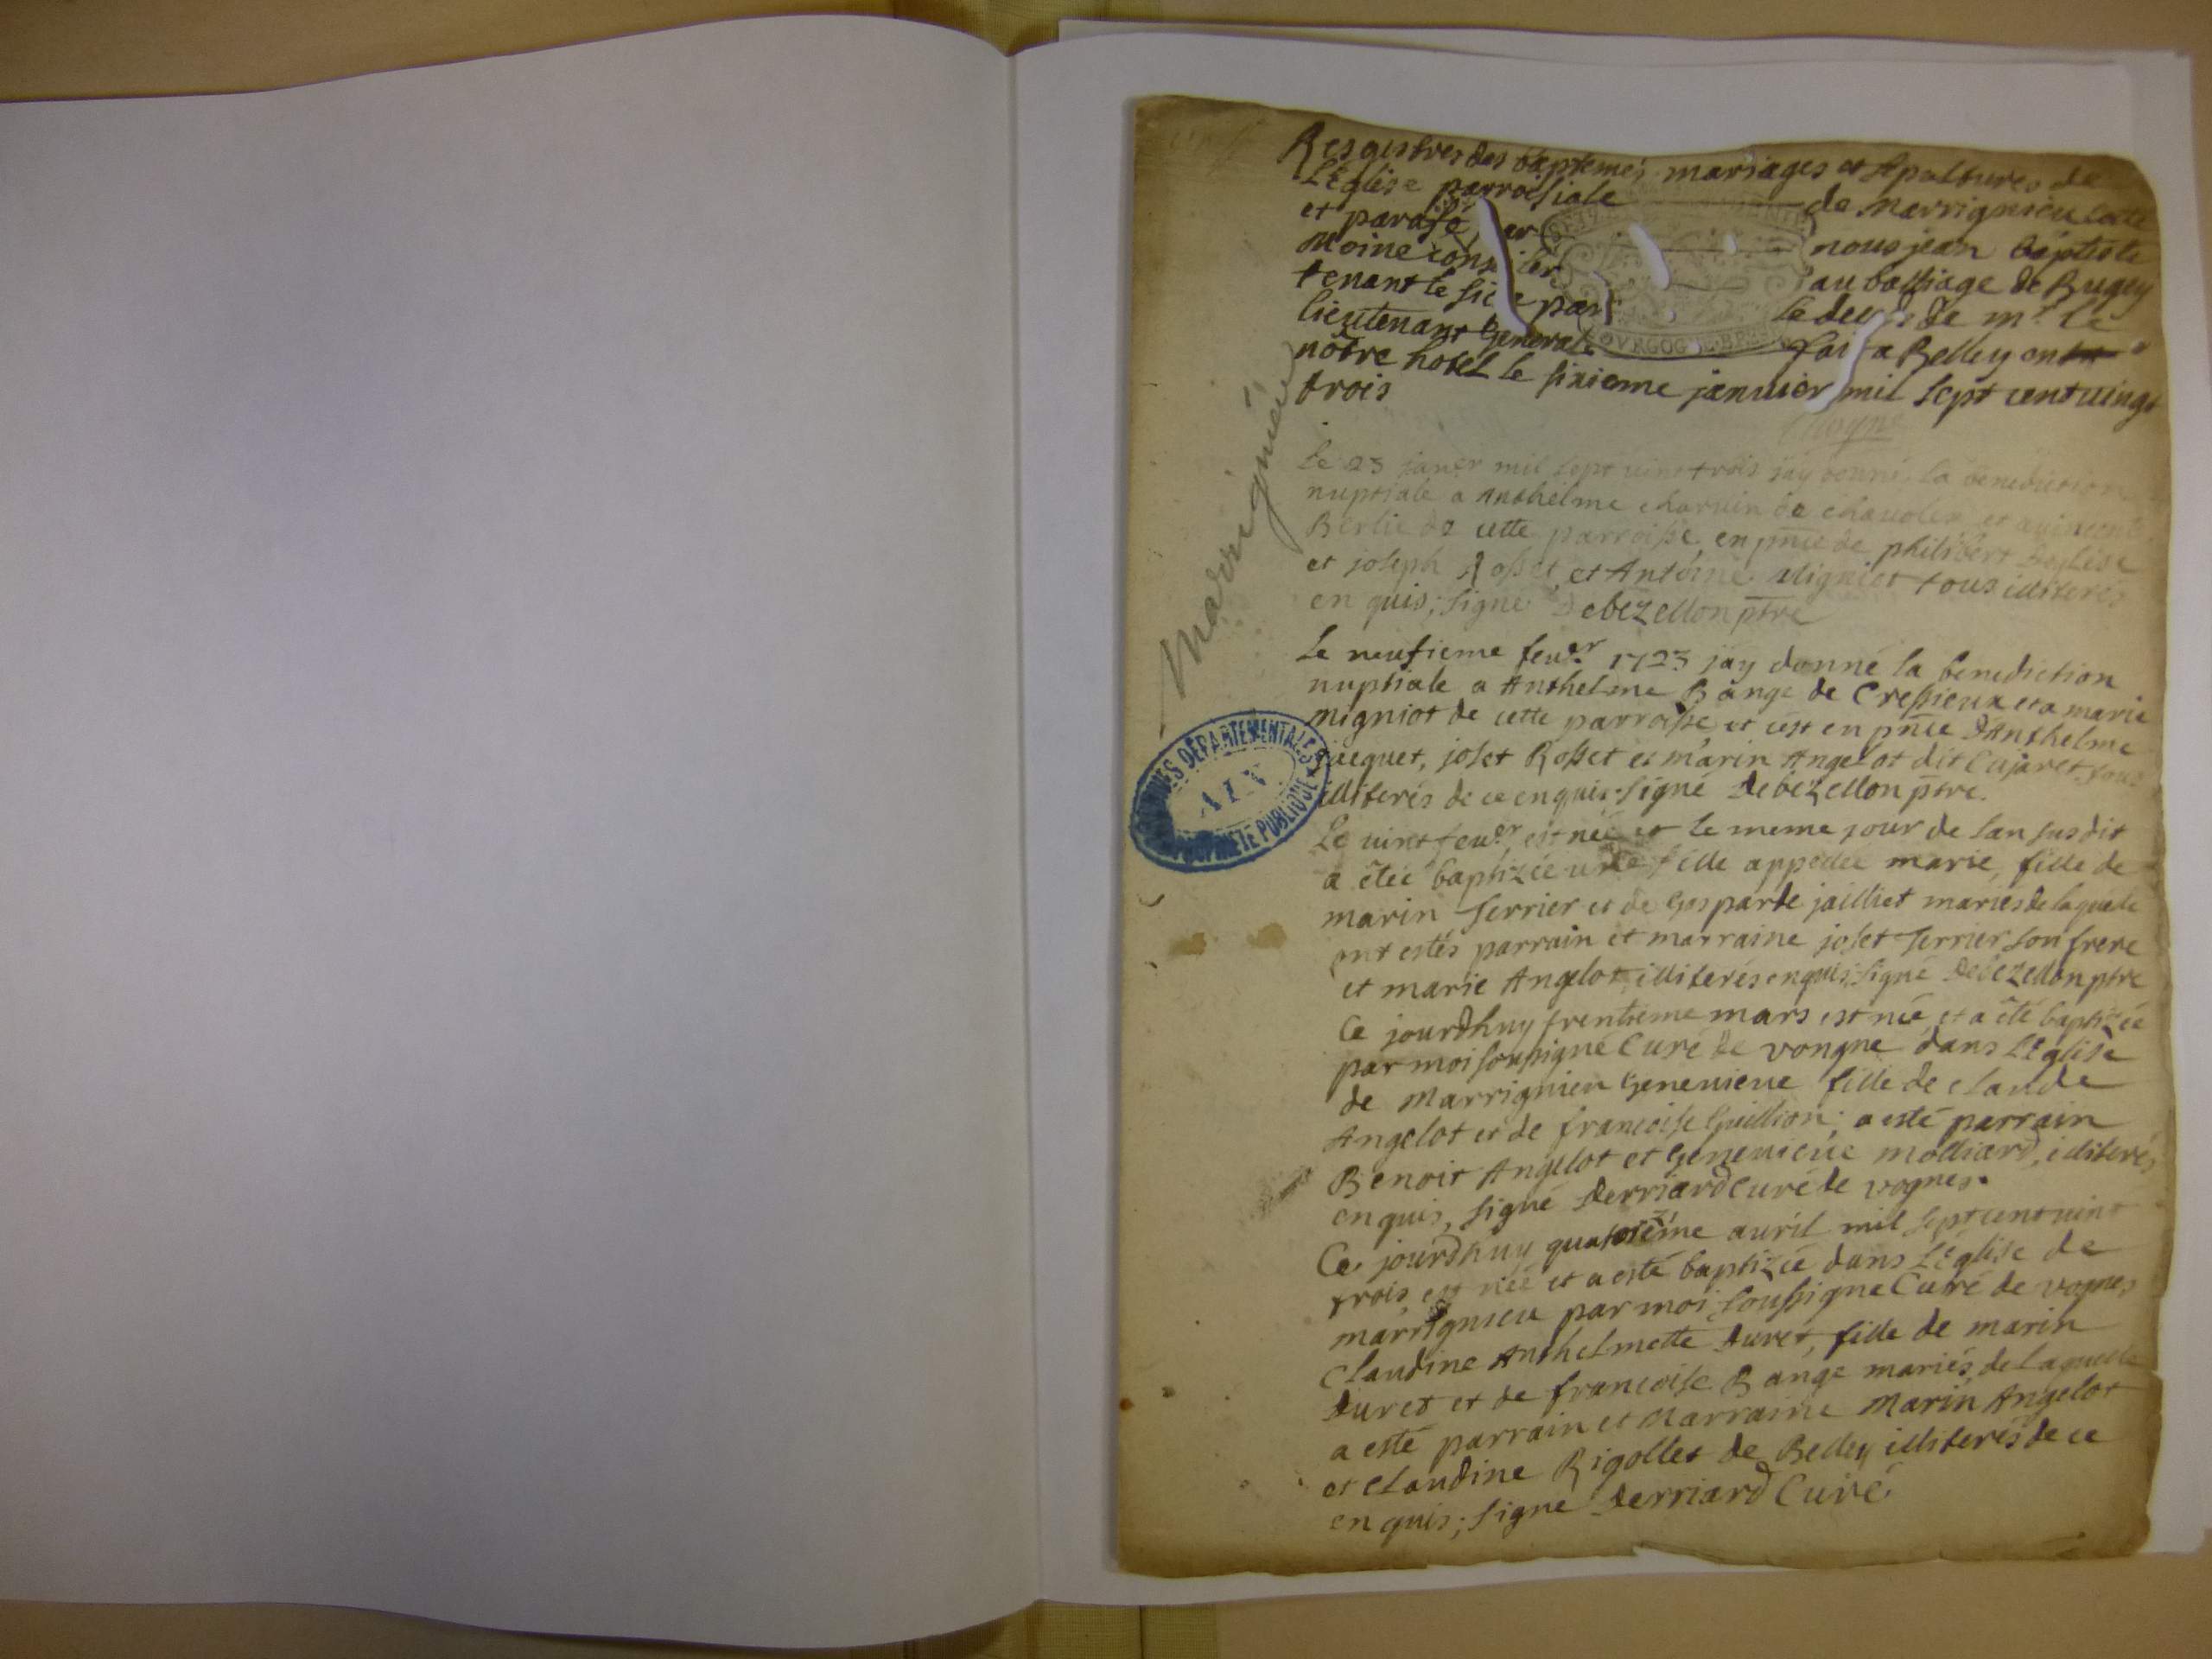 Resgistres des baptemes mariages et sepultures de
L'Eglise parroissiale de Marrignieu cotté
et parafé par nous jean baptiste
Moine cons ler au balliage de Bugey
tenant le sie e par le decés de mr. le
lieutenant General fait a Belley en
nôtre hotel le sixieme januier mil sept cent uingt
trois
Marrignieu
Le 23 januer mil sept uint trois jay donné la benediction
nuptiale a Anthelme charuin de chauolex et a
Berlie de cette parroisse en pnce de philibert
et joseph Rosset et Antoine Migniot tous illiterés
enquis; signé Debezellon ptre
Le neufieme feur. 1723 jay donné la benediction
nuptiale a Anthelme Bange de Cressieux et a marie
migniot de cette parroisse et c'est en pnce d'Anthelme
jacquet, joset Rosset et marin Angelot dit Cujaret tous
illiterés de ce enquis. signé Debezellon ptre.
Le uint feur. est née et le meme jour de lan susdit
a étéé baptizée une fille appellée marie, fille de
marin Terrier et de Gasparde jailliet mariés de laquele
ont estés parrain et marraine joset Terrier son frere
et marie Angelot, illiterés enquis, signé Debezellon ptre
Ce jourdhuy trentieme mars est née et a été baptizée
par moi soussigné Curé de vongne dans L'Eglise
de Marrignieu Geneuieue fille de claude
Angelot et de francoise Guillion; a esté parrain
Benoit Angelot et Geneuieue molliard, illiterés
enquis, signé Derriard curé de vognes.
Ce jourdhuy quatorzéme auril mil sept cent uint
trois est née et a esté baptizée dans L'Eglise de
marrignieu par moi soussigné Curé de vognes
Claudine Anthelmette Duret, fille de marin
Duret et de francoise Bange mariés, de laquelle
a esté parrain et Marraine Marin Angelot
et claudine Rigollet de Belley illiterés de ce
enquis; signé Derriard Curé
ARCHIVES DÉPARTEMENTALES
AIN
PROPRIÉTÉ PUBLIQUE